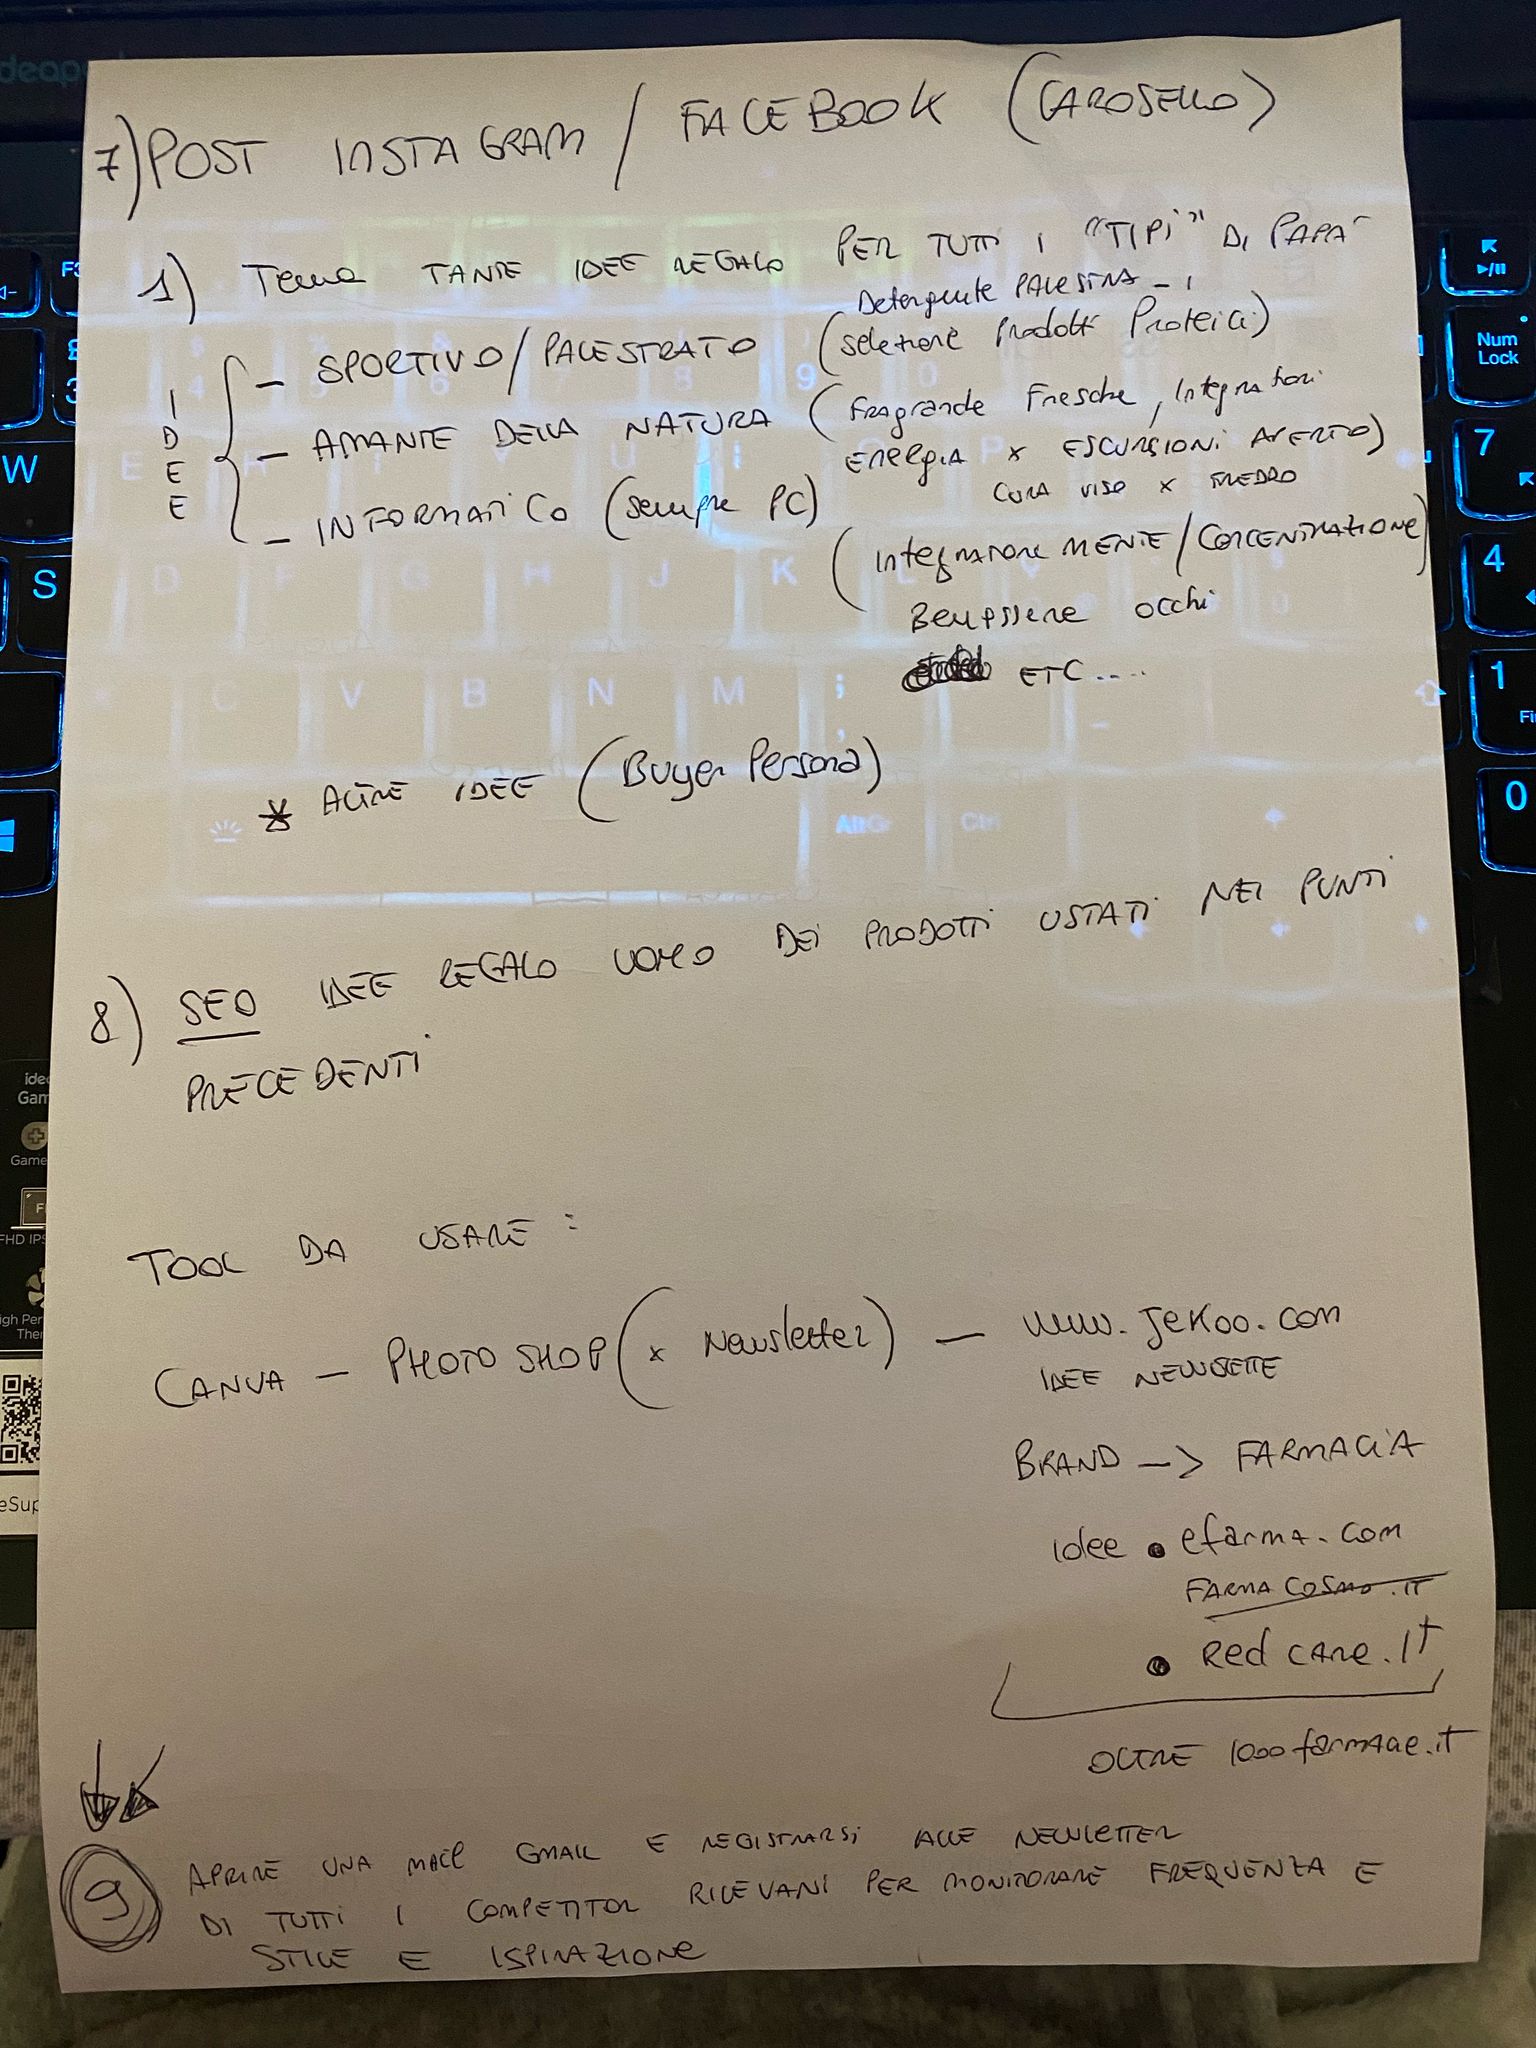 7) POST INSTAGRAM / FACEBOOK (CAROSELLO)
1) Tema TANTE IDEE REGALO PER TUTTI I "TIPI" DI PAPA'
Detergente PALESTRA
IDEE
- SPORTIVO/PALESTRATO (selezione Prodotti Proteici)
- AMANTE DELLA NATURA (Fragranze Fresche, Integratori
ENERGIA x ESCURSIONI APERTO)
CURA VISO x FREDDO
- INFORMATICO (sempre PC)
(Integratore MENTE/CONCENTRAZIONE)
Benessere occhi
ETC....
* ALTRE IDEE (Buyer Persona)
8) SEO IDEE REGALO UOMO DEI PRODOTTI USTATI NEI PUNTI
PRECEDENTI
TOOL DA USARE :
CANVA - PHOTOSHOP (x Newsletter) - www.JeKoo.com
IDEE
BRAND -> FARMACIA
idee • efarma.com
FARMACOSMO.IT
• Redcare.It
OLTRE 1000farmacie.it
9 APRIRE UNA MAIL GMAIL E REGISTRARSI ALLE NEWSLETTER
DI TUTTI I COMPETITOR RILEVANI PER MONITORARE FREQUENZA E
STILE E ISPIRAZIONE
F3
Num
Lock
W
7
S
4
1
0
E
D
H
J
K
V
B
N
M
AltGr
Ctrl